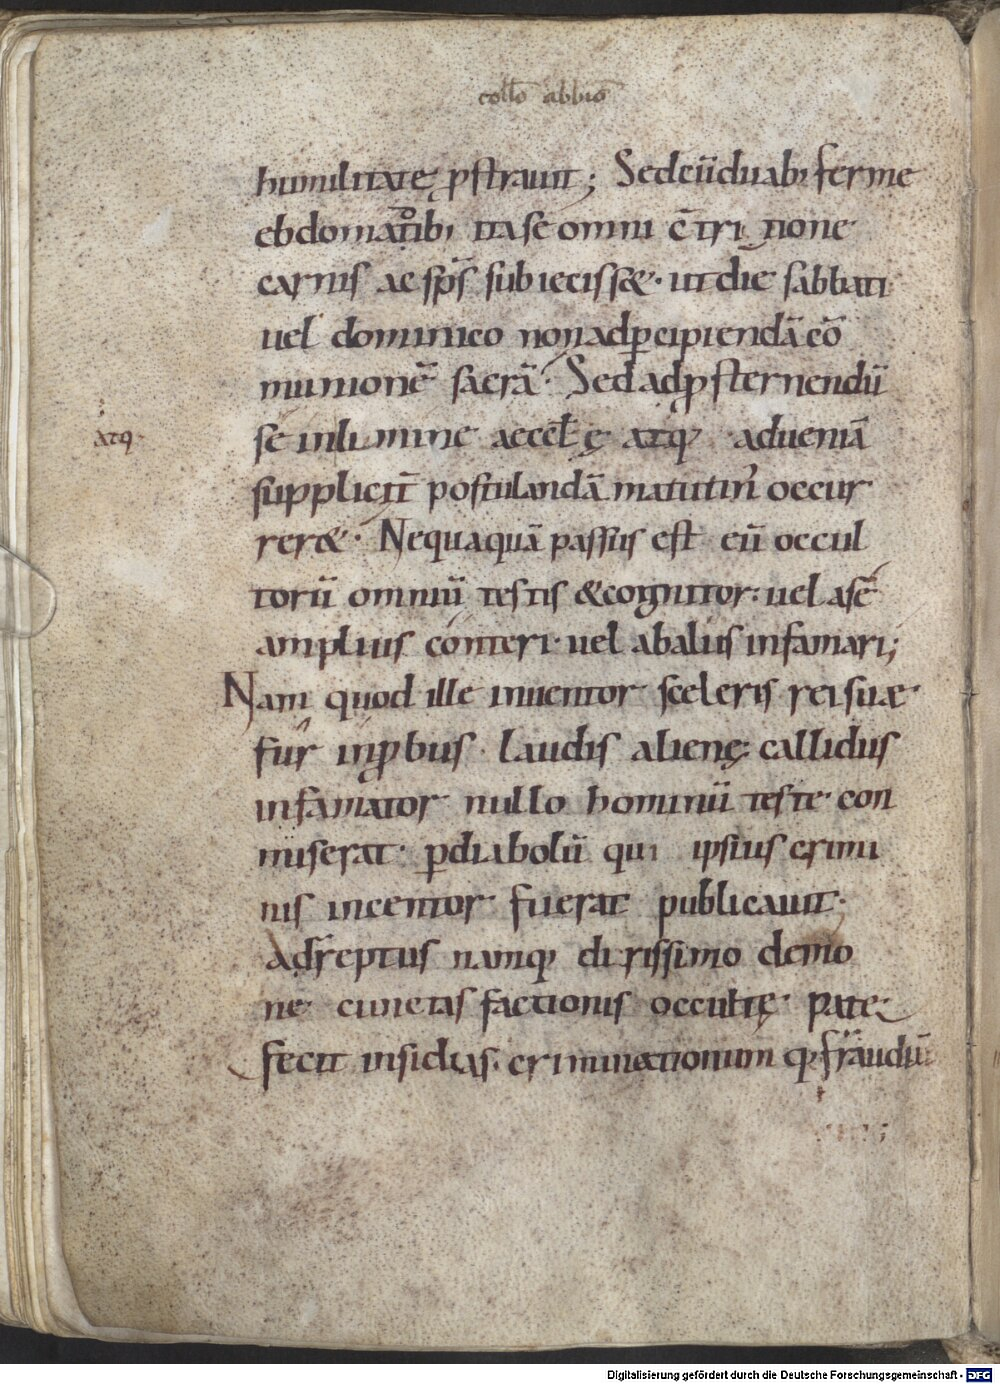 collō abbiō
humilitatę ꝓstrauit; Sed cū duabꝰ ferme
ebdomadibꝰ ita se omni c̄tritione
carnis ac sp̄s subiecisset· ut die sabbati
uel dominico non ad ꝑcipiendā cō
munionē sacrā· Sed ad ꝓsternendū
se in limine aeccl̄ę atq; adueniā
supplicit̄ postulandā matutin᾽ occur
reret· Nequaquā passus est eū occul
torū omniū testis & cognitor: uel a sē
amplius conteri· uel ab aliis infamari;
Nam quod ille inuentor sceleris rei suae·
fur inꝓbus· laudis alienę callidus
infamator nullo hominū teste con
miserat· ꝑ diabolū qui ipsius crimi
nis incentor fuerat publicauit·
Adreptus namq; dirissimo demo
ne cunctas factionis occultę· pate
fecit insidias· criminationum q; fraudū
atq·
Digitalisierung gefördert durch die Deutsche Forschungsgemeinschaft - DFG